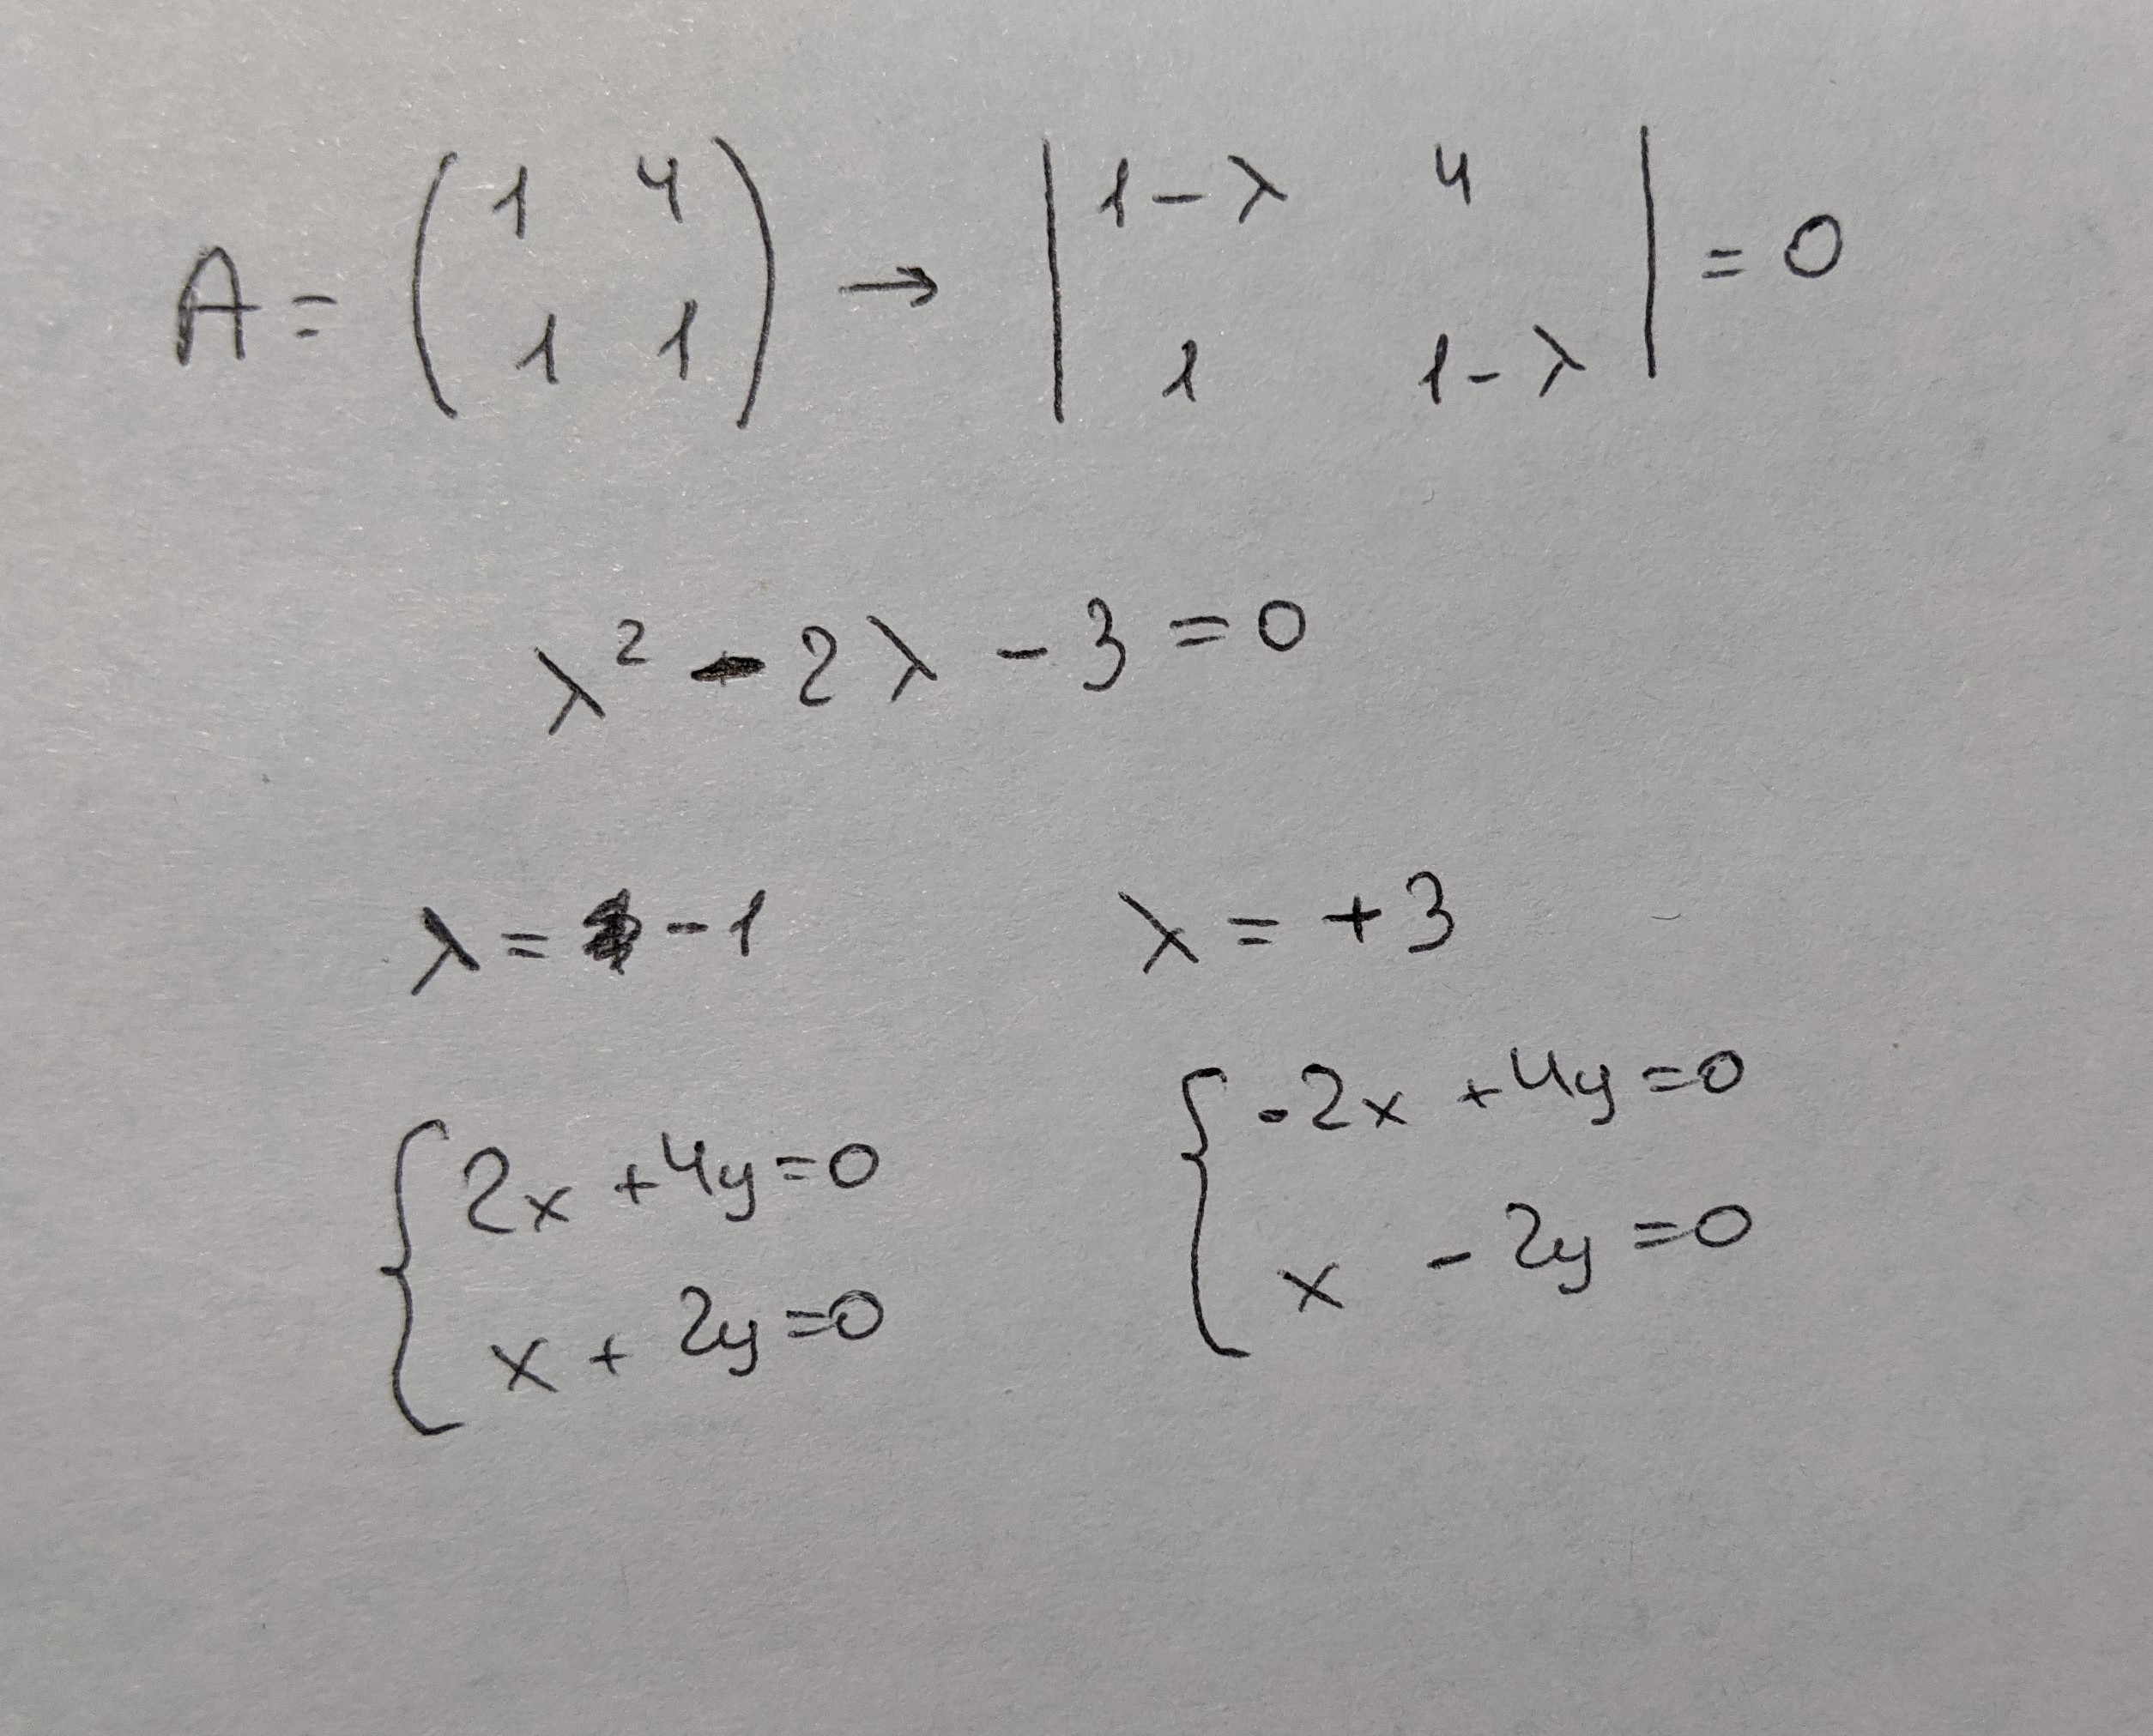 A = ( 1 4 ; 1 1 ) → | 1-λ 4 ; 1 1-λ | = 0
λ² - 2λ - 3 = 0
λ = -1 λ = +3
{ 2x + 4y = 0 { -2x + 4y = 0
x + 2y = 0 x - 2y = 0